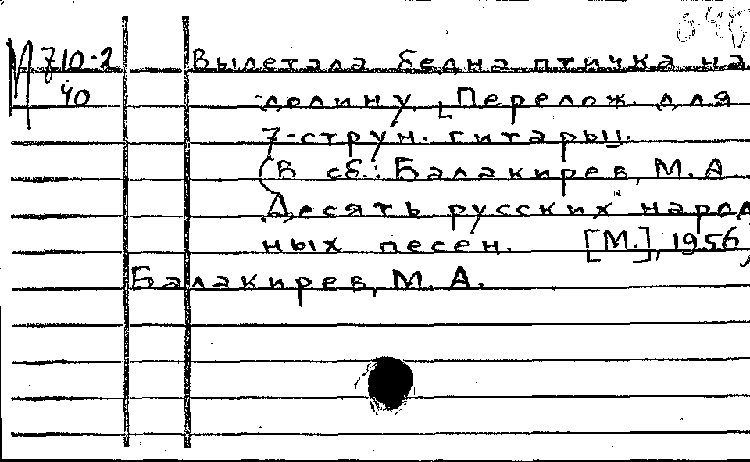 М 710-2
40
Вылетала бедна птичка на
долину. [Перелож. для
7-струн. гитары].
(В сб.: Балакирев, М. А
Десять русских народ
ных песен. [М.], 1956,
Балакирев, М. А.